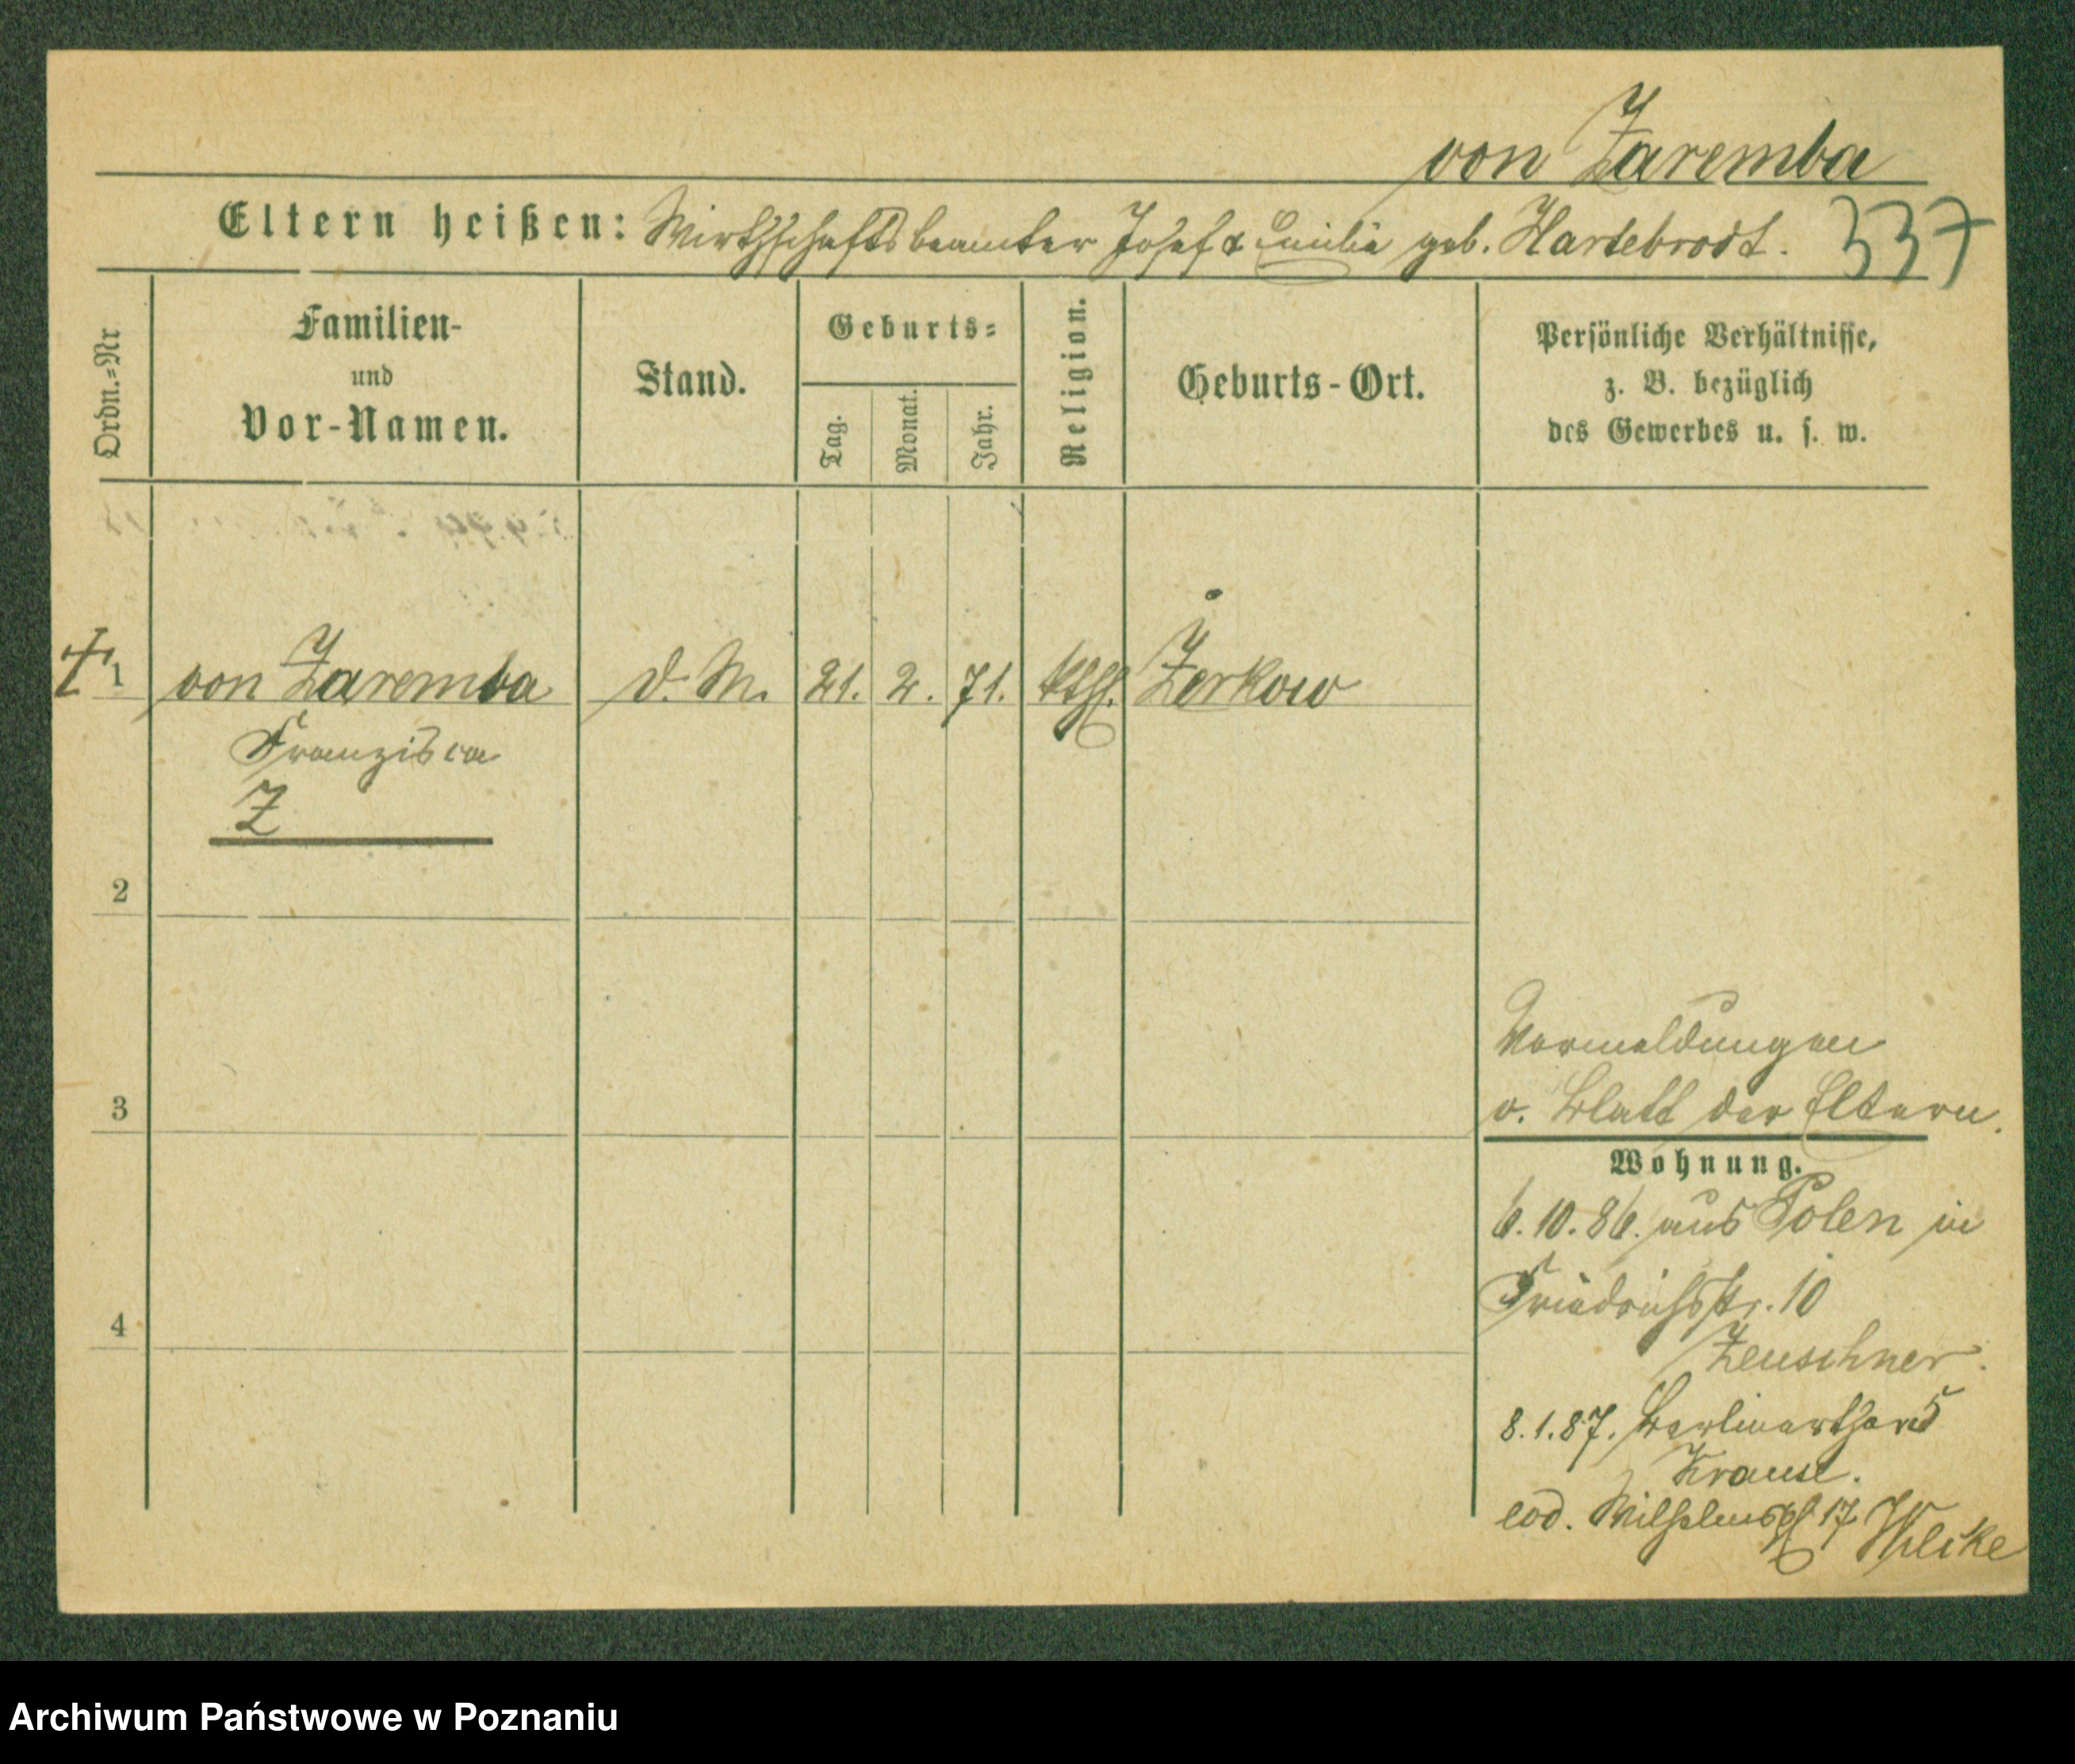 von Zaremba
Eltern heißen: Wirthschaftsbeamter Josef & Emilie geb. Hartebrodt. 337
Ordn.=Nr
Familien-
und
Vor-Namen.
Stand.
Geburts=
Tag. Monat. Jahr.
Religion.
Geburts-Ort.
Persönliche Verhältnisse,
z. B. bezüglich
des Gewerbes u. s. w.
1 von Zaremba d. M. 21. 2. 71. kthl. Zerkow
Franzisca
Z
2
3
4
Vormeldungen
v. Blatt der Eltern.
Wohnung.
6.10.86. aus Polen in
Friedrichsstr. 10
Zeuschner.
8.1.87. Berlinerthor 5
Krause.
eod. Wilhelmspl 17 Wilcke
Archiwum Państwowe w Poznaniu